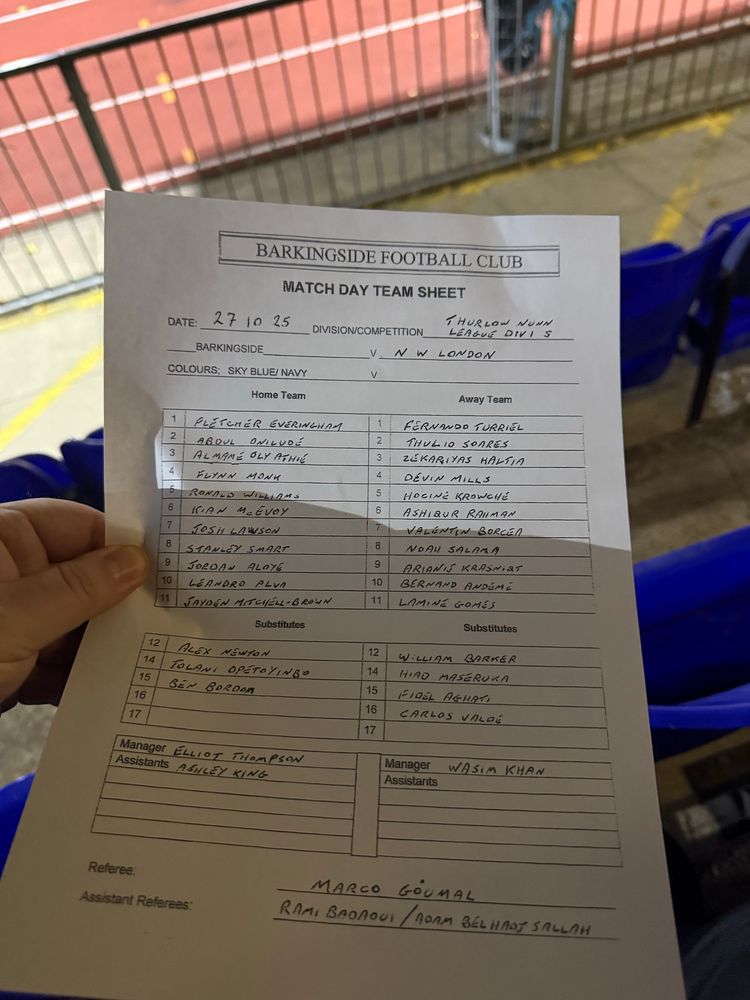 BARKINGSIDE FOOTBALL CLUB
MATCH DAY TEAM SHEET
DATE: 27 10 25 DIVISION/COMPETITION THURLOW NUNN LEAGUE DIV 1 S
BARKINGSIDE V. N W LONDON
COLOURS; SKY BLUE/ NAVY V
Home Team Away Team
1 FLETCHER EVERINGHAM 1 FERNANDO TURRIEL
2 ABDUL ONILUDE 2 THULIO SOARES
3 ALMAME OLY ATHIE 3 ZEKARIYAS HALTIA
4 FLYNN MONK 4 DEVIN MILLS
5 RONALD WILLIAMS 5 HOCINE KROWCHE
6 KIAN McEVOY 6 ASHIQUR RAHMAN
7 JOSH LAWSON 7 VALENTIN BORCEA
8 STANLEY SMART 8 NOAH SALAMA
9 JORDAN ALOYE 9 ARIANIS KRASNIQT
10 LEANDRO ALVA 10 BERNAND ANDEME
11 JAYDEN MITCHELL-BROWN 11 LAMINE GOMES
Substitutes Substitutes
12 ALEX NEWTON 12 WILLIAM BARKER
14 TOLANI OPETOYINBO 14 HIAD MASERUKA
15 BEN BORDOM 15 FIDEL AGHATI
16 16 CARLOS VALDE
17 17
Manager ELLIOT THOMPSON Manager WASIM KHAN
Assistants ASHLEY KING Assistants
Referee: MARCO GOUMAL
Assistant Referees: RAMI BADAOUI / ADAM BELHADJ SALLAH